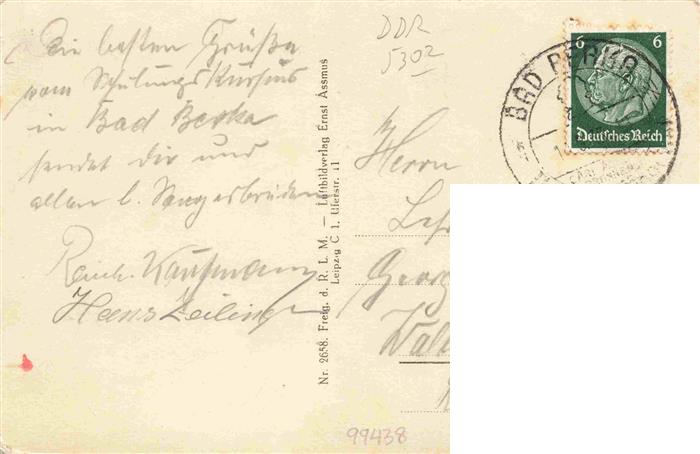 Die besten Grüße
vom Schulungskursus
in Bad Berka
sendet dir und
allen l. Sangesbrüdern
Reinh. Kaufmann
Hans Zeilinger
Nr. 2658. Freig. d. R. L. M. — Luftbildverlag Ernst Assmus
Leipzig C 1, Uferstr. 11
DDR
5302
6 6
Deutsches Reich
BAD BERKA
Herrn
Georg
99438